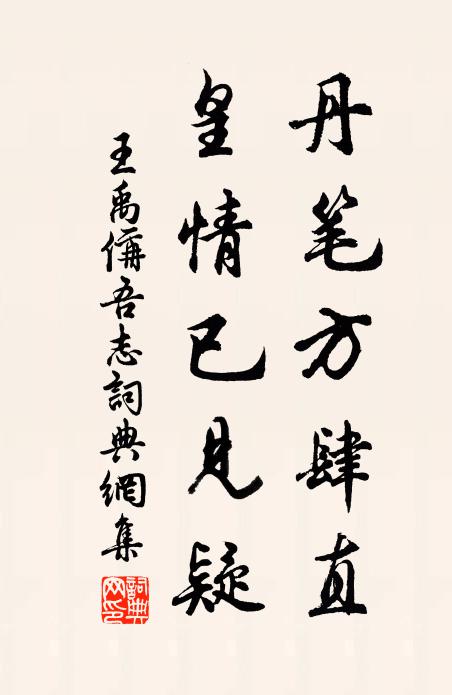 丹笔方肆直
皇情已见疑
王禹偁吾志詞典網集
詞典网印